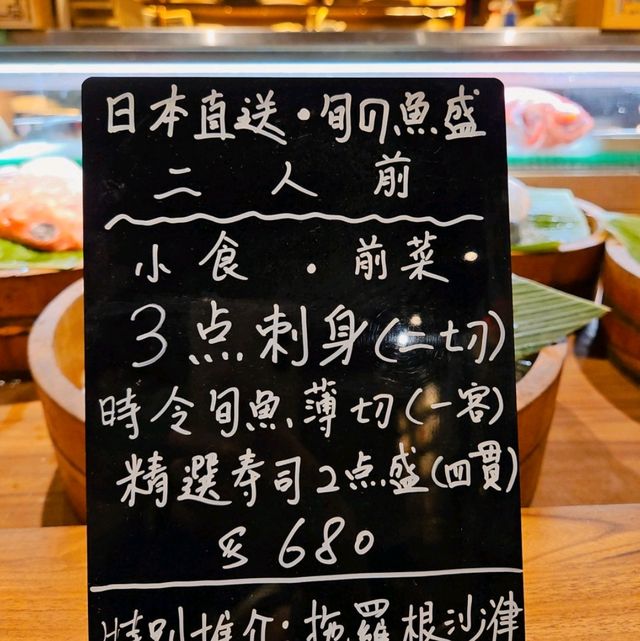 日本直送・旬の魚盛
二人前
小食・前菜
3点刺身(二切)
時令旬魚薄切(一客)
精選寿司2点盛(四貫)
$680
特別推介:拖羅根沙津